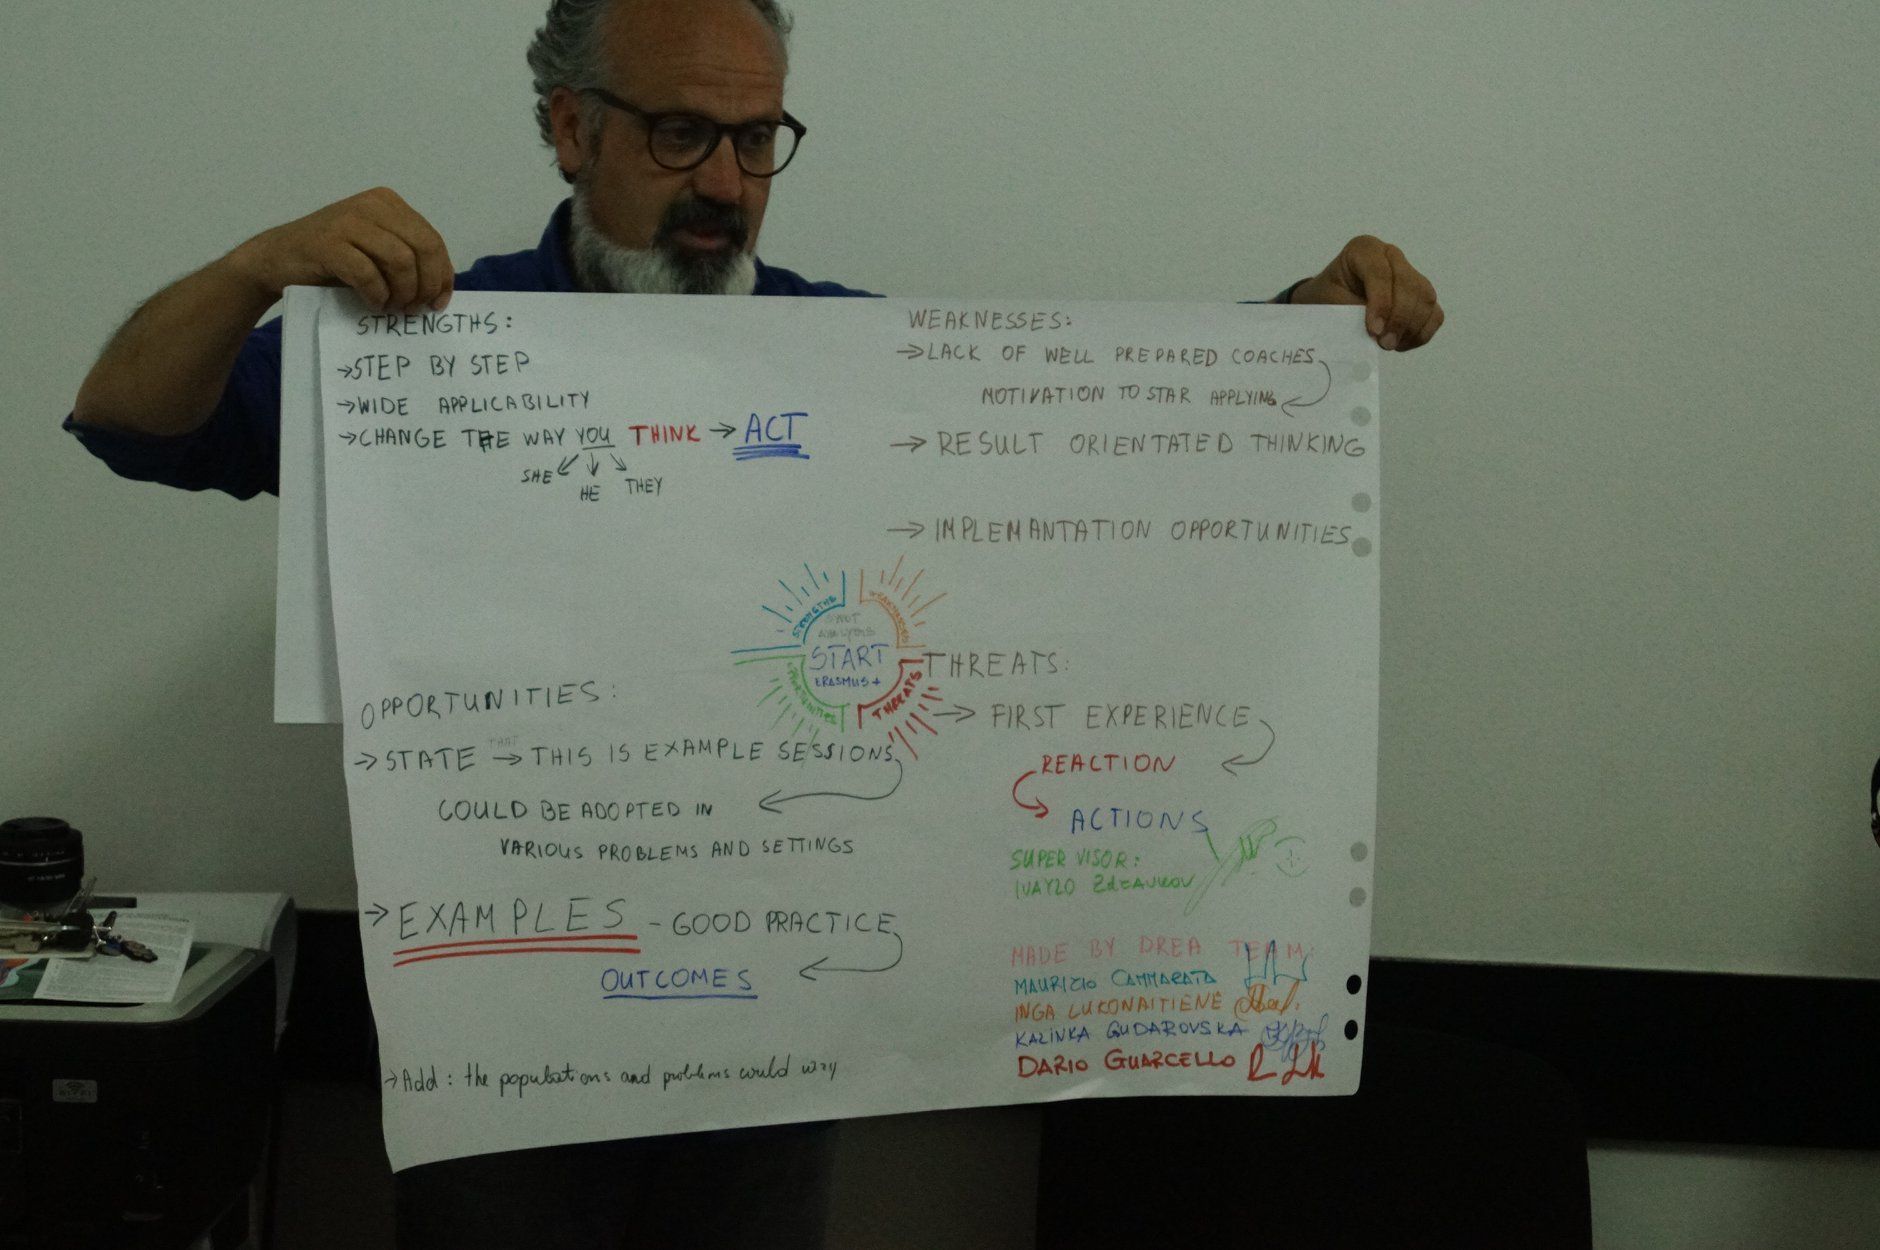 STRENGTHS:
→STEP BY STEP
→WIDE APPLICABILITY
→CHANGE THE WAY YOU THINK → ACT
SHE HE THEY
WEAKNESSES:
→LACK OF WELL PREPARED COACHES
MOTIVATION TO STAR APPLYING
→RESULT ORIENTATED THINKING
→IMPLEMANTATION OPPORTUNITIES
STRENGTHS
WEAKNESSES
SWOT
ANALYSIS
START
ERASMUS+
OPPORTUNITIES
THREATS
OPPORTUNITIES:
THAT
→STATE → THIS IS EXAMPLE SESSIONS
COULD BE ADOPTED IN
VARIOUS PROBLEMS AND SETTINGS
→EXAMPLES - GOOD PRACTICE
OUTCOMES
→Add: the populations and problems could
THREATS:
→ FIRST EXPERIENCE
REACTION
ACTIONS
SUPERVISOR:
IVAYLO ZdRAVKOV
MADE BY DREA TEAM:
MAURIZIO CAMMARATA
INGA LUKONAITIENĖ
KALINKA GUDAROVSKA
DARIO GUARCELLO